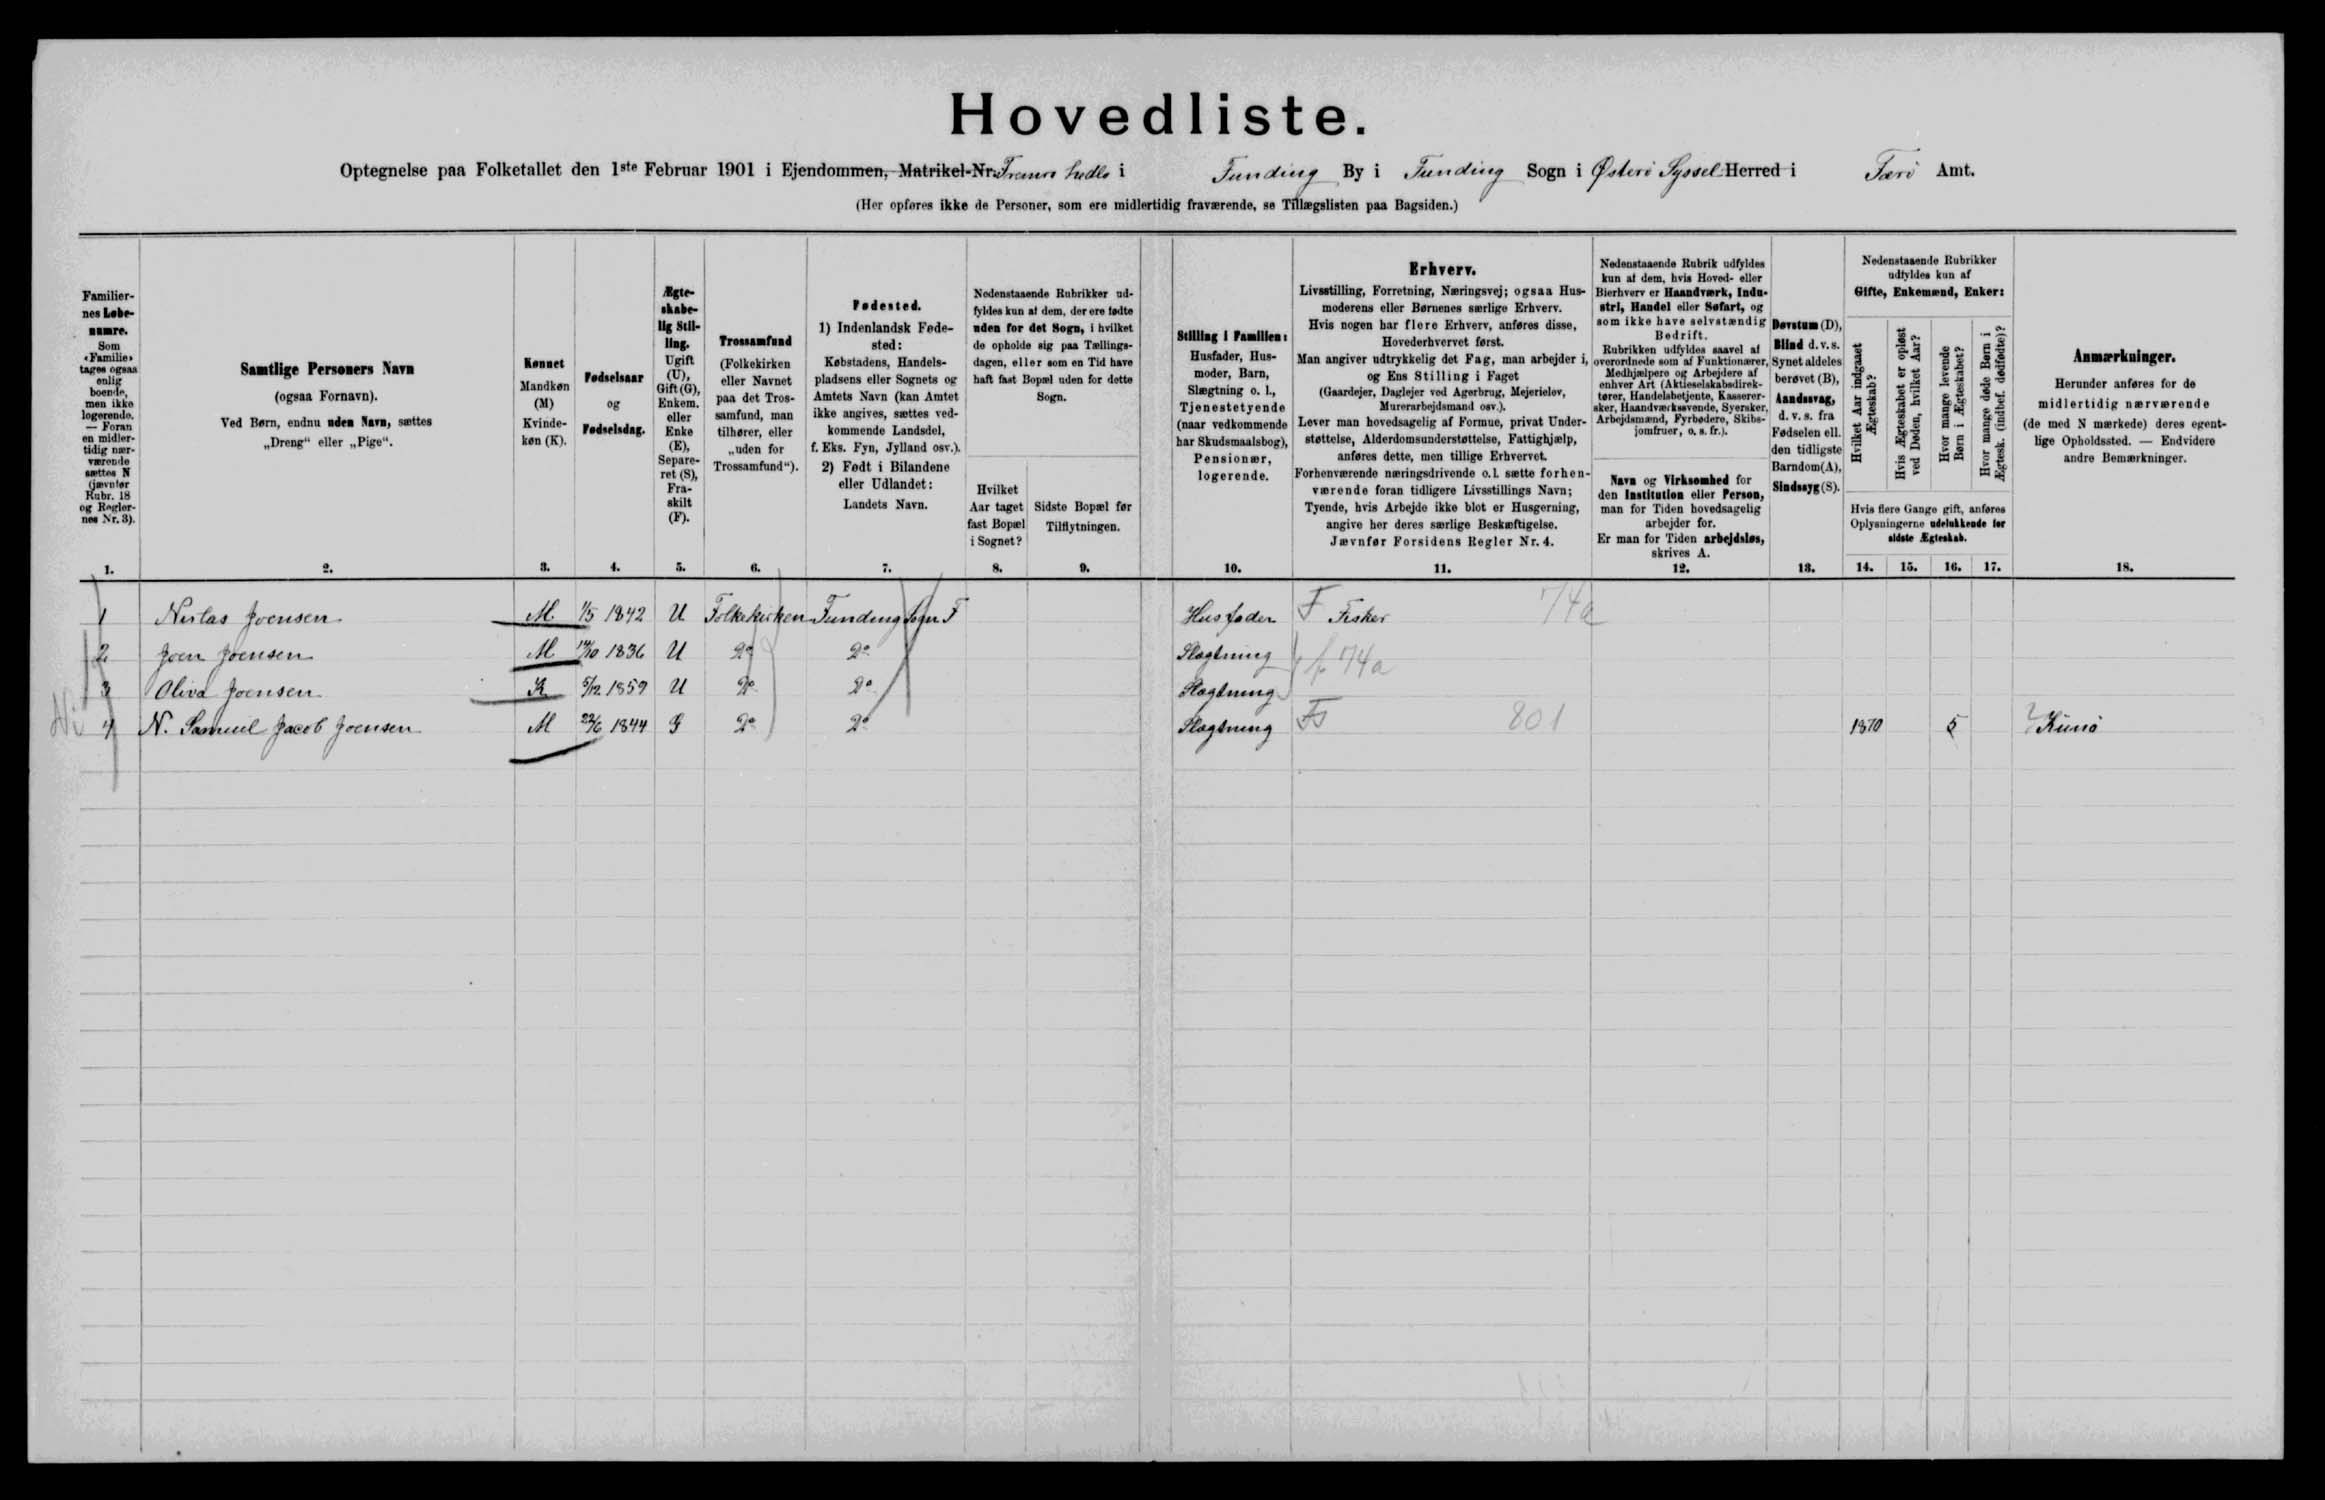 Hovedliste.
Optegnelse paa Folketallet den 1ste Februar 1901 i Ejendommen, Matrikel-Nr. i Funding By i Funding Sogn i Østerö Syssel Herred i Færö Amt.
(Her opføres ikke de Personer, som ere midlertidig fraværende, se Tillægslisten paa Bagsiden.)
Familier-
nes Løbe-
numre.
Som
«Familie»
tages ogsaa
enlig
boende,
men ikke
logerende.
— Foran
en midler-
tidig nær-
værende
sættes N
(jævnfør
Rubr. 18
og Regler-
nes Nr. 3).
1.
Samtlige Personers Navn
(ogsaa Fornavn).
Ved Børn, endnu uden Navn, sættes
„Dreng“ eller „Pige“.
2.
Kønnet
Mandkøn
(M)
Kvinde-
køn (K).
3.
Fødselsaar
og
Fødselsdag.
4.
Ægte-
skabe-
lig Stil-
ling.
Ugift
(U),
Gift (G),
Enkem.
eller
Enke
(E),
Separe-
ret (S),
Fra-
skilt
(F).
5.
Trossamfund
(Folkekirken
eller Navnet
paa det Tros-
samfund, man
tilhører, eller
„uden for
Trossamfund“).
6.
Fødested.
1) Indenlandsk Føde-
sted:
Købstadens, Handels-
pladsens eller Sognets og
Amtets Navn (kan Amtet
ikke angives, sættes ved-
kommende Landsdel,
f. Eks. Fyn, Jylland osv.).
2) Født i Bilandene
eller Udlandet:
Landets Navn.
7.
Nedenstaaende Rubrikker ud-
fyldes kun af dem, der ere fødte
uden for det Sogn, i hvilket
de opholde sig paa Tællings-
dagen, eller som en Tid have
haft fast Bopæl uden for dette
Sogn.
Hvilket
Aar taget
fast Bopæl
i Sognet?
8.
Sidste Bopæl før
Tilflytningen.
9.
Stilling i Familien:
Husfader, Hus-
moder, Barn,
Slægtning o. l.,
Tjenestetyende
(naar vedkommende
har Skudsmaalsbog),
Pensionær,
logerende.
10.
Erhverv.
Livsstilling, Forretning, Næringsvej; ogsaa Hus-
moderens eller Børnenes særlige Erhverv.
Hvis nogen har flere Erhverv, anføres disse,
Hovederhvervet først.
Man angiver udtrykkelig det Fag, man arbejder i,
og Ens Stilling i Faget
(Gaardejer, Daglejer ved Agerbrug, Mejerielev,
Murerarbejdsmand osv.).
Lever man hovedsagelig af Formue, privat Under-
støttelse, Alderdomsunderstøttelse, Fattighjælp,
anføres dette, men tillige Erhvervet.
Forhenværende næringsdrivende o. l. sætte forhen-
værende foran tidligere Livsstillings Navn;
Tyende, hvis Arbejde ikke blot er Husgerning,
angive her deres særlige Beskæftigelse.
Jævnfør Forsidens Regler Nr. 4.
11.
Nedenstaaende Rubrik udfyldes
kun af dem, hvis Hoved- eller
Bierhverv er Haandværk, Indu-
stri, Handel eller Søfart, og
som ikke have selvstændig
Bedrift.
Rubrikken udfyldes saavel af
overordnede som af Funktionærer,
Medhjælpere og Arbejdere af
enhver Art (Aktieselskabsdirek-
tører, Handelsbetjente, Kasserer-
sker, Haandværkssvende, Syersker,
Arbejdsmænd, Fyrbødere, Skibs-
jomfruer, o. s. fr.).
Navn og Virksomhed for
den Institution eller Person,
man for Tiden hovedsagelig
arbejder for.
Er man for Tiden arbejdsløs,
skrives A.
12.
Døvstum (D),
Blind d. v. s.
Synet aldeles
berøvet (B),
Aandssvag,
d. v. s. fra
Fødselen ell.
den tidligste
Barndom (A),
Sindssyg (S).
13.
Nedenstaaende Rubrikker
udfyldes kun af
Gifte, Enkemænd, Enker:
Hvilket Aar indgaaet
Ægteskab?
Hvis Ægteskabet er opløst
ved Døden, hvilket Aar?
Hvor mange levende
Børn i Ægteskabet?
Hvor mange døde Børn i
Ægtesk. (indbef. dødfødte)?
Hvis flere Gange gift, anføres
Oplysningerne udelukkende for
sidste Ægteskab.
14. 15. 16. 17.
Anmærkninger.
Herunder anføres for de
midlertidig nærværende
(de med N mærkede) deres egent-
lige Opholdssted. — Endvidere
andre Bemærkninger.
18.
1 Niclas Joensen M 1/5 1842 U Folkekirken Funding Sogn F Husfader F Fisker 74a
2 Joen Joensen M 14/10 1836 U Do Do Slægtning f 74a
3 Oliva Joensen K 5/12 1859 U Do Do Slægtning
4 N. Samuel Jacob Joensen M 22/6 1844 G Do Do Slægtning 801 1870 5 Kunö